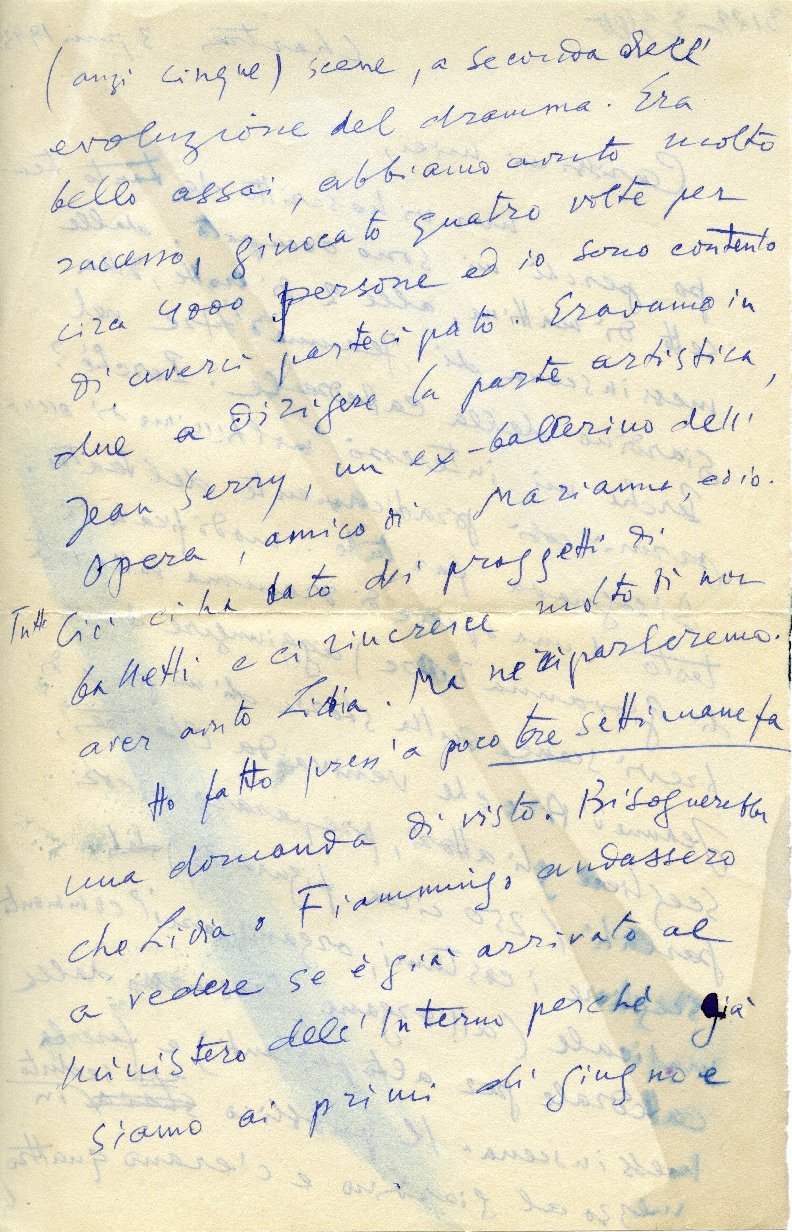 (anzi cinque) scene, a seconda dell'
evoluzione del dramma. Era
bello assai, abbiamo avuto molto
successo, giuocato quatro volte per
circa 4000 persone ed io sono contento
di averci partecipato. Eravamo in
due a dirigere la parte artistica,
Jean Serry, un ex-ballerino dell'
Opera, amico di Marianne, ed io.
Tutto Ciò ci ha dato dei proggetti di
balletti e ci rincresce molto di non
aver avuto Lidia. Ma ne riparleremo.
Ho fatto press'a poco tre settimane fa
una domanda di visto. Bisognerebbe
che Lidia o Fiammingo andassero
a vedere se è già arrivato al
Ministero dell'Interno perchè già
siamo ai primi di giugno e